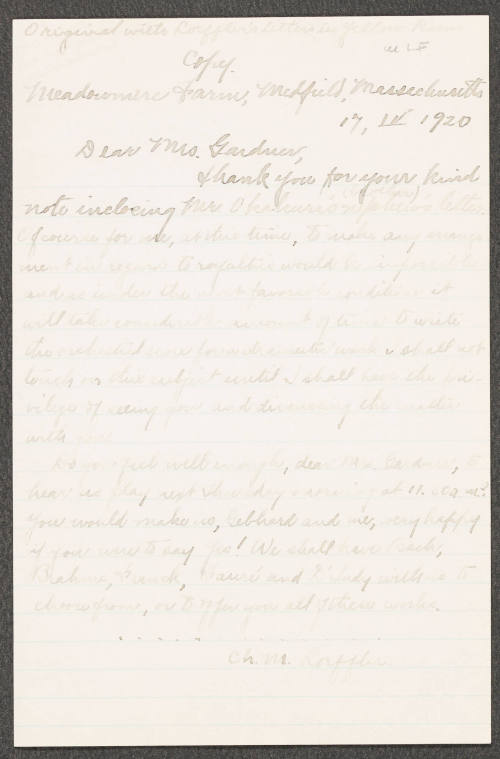 Original with Loeffler's letters in yellow
Copy.
Meadowmere Farm, Medfield, Massachusetts
17, IV 1920
Dear Mrs. Gardner,
Thank you for your kind
note inclosing Mr Okakura's nephew's letter.
Of course for me, at this time, to make any arrange-
ment in regard to royalties would be impossible
and as under the most favorable conditions it
will take considerable amount of time to write
the orchestral score for a dramatic work I shall not
touch on this subject until I shall have the pri-
vilege of seeing you and discussing the matter
with you.
Do you feel well enough, dear Mrs. Gardner, to
hear us play next Thursday morning at 11. o.c. a.m.?
You would make us, Gebhard and me, very happy
if you were to say yes! We shall have Bach,
Brahms, Franck, Fauré and D'Indy with us to
choose from, or to offer you all of these works.
. . . . . . . . . . . . .
Ch. M. Loeffler